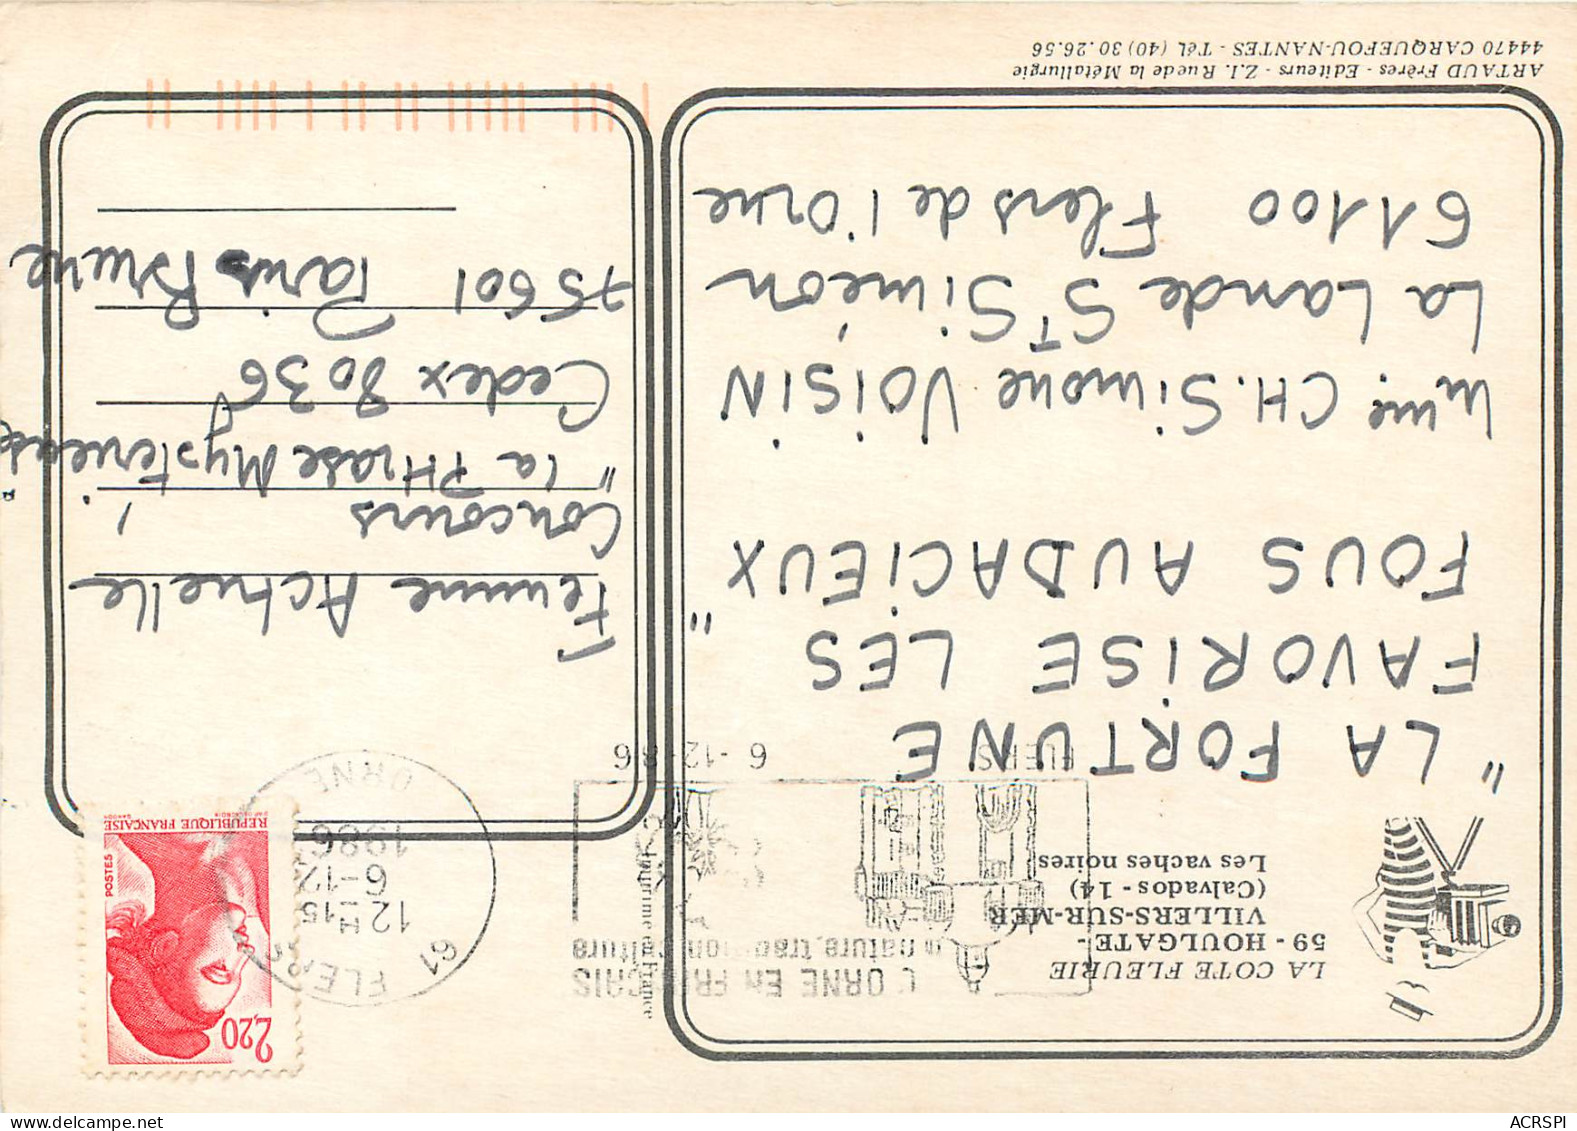 LA COTE FLEURIE
59 - HOULGATE -
VILLERS-SUR-MER
(Calvados - 14)
Les vaches noires
" LA FORTUNE
FAVORISE LES
FOUS AUDACIEUX "
Mme CH. Simone VOISIN
La Lande St Siméon
61100 Flers de l'Orne
ARTAUD Frères - Editeurs - Z.I. Rue de la Métallurgie
44470 CARQUEFOU-NANTES - Tél. (40) 30.26.56
Imprimé en France
L'ORNE EN FRANÇAIS
nature, tradition, culture
FLERS
6 - 12 - 86
61 FLERS
12 H 15
6-12
1986
ORNE
2,20
POSTES
REPUBLIQUE FRANÇAISE
Femme Actuelle
Concours
" la PHrase Mystérieuse "
Cedex 8036
75601 Paris Brune
ACRSPI